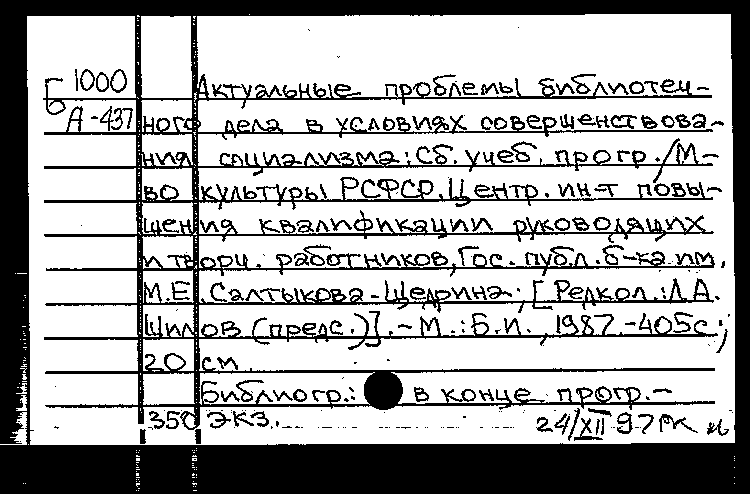 Б 1000 Актуальные проблемы библиотеч-
А-437 ного дела в условиях совершенствова-
ния социализма: Сб. учеб. прогр. / М-
во культуры РСФСР. Центр. ин-т повы-
шения квалификации руководящих
и творч. работников, Гос. публ. б-ка им.
М.Е. Салтыкова-Щедрина; [Редкол.: Л.А.
Шилов (предс.)]. - М.: Б.и., 1987. - 405с.;
20 см
Библиогр.: в конце прогр. -
350 экз. 24/XII 97 РК